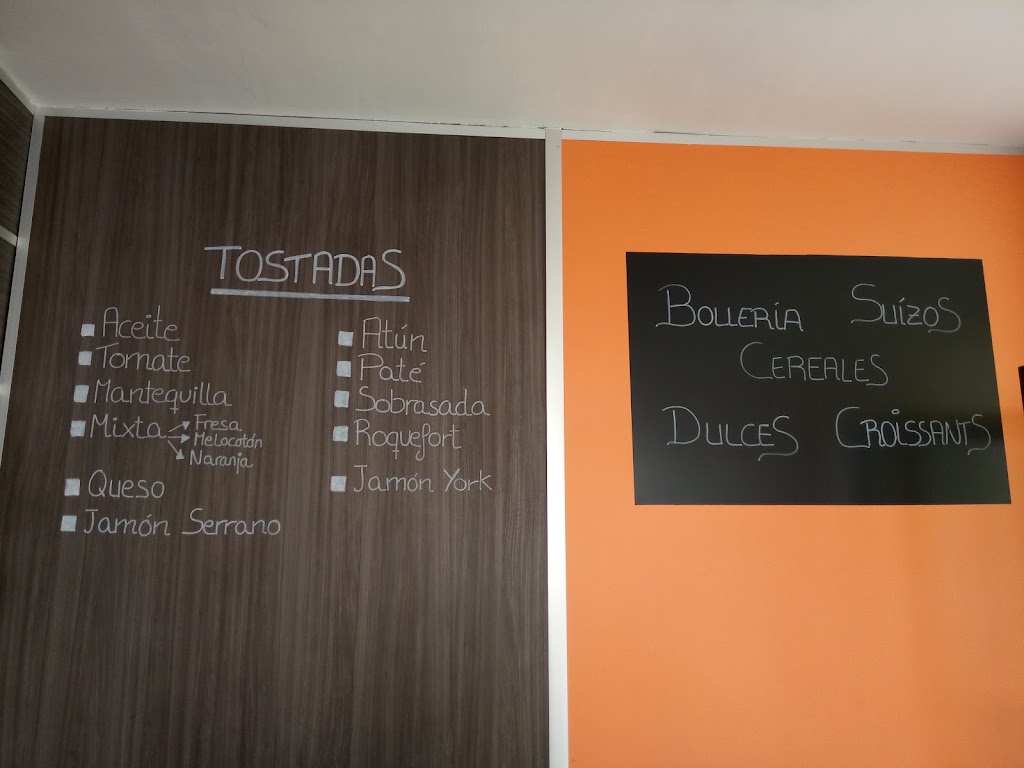 TOSTADAS
Aceite
Tomate
Mantequilla
Mixta
Fresa
Melocotón
Naranja
Queso
Jamón Serrano
Atún
Paté
Sobrasada
Roquefort
Jamón York
BOLLERÍA SUÍZOS
CEREALES
DULCES CROISSANTS